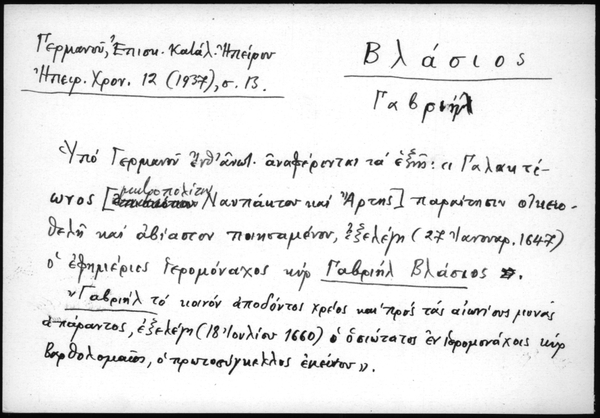 Γερμανοῦ, Ἐπισκ. Κατάλ. Ἠπείρου
Ἠπειρ. Χρον. 12 (1937), σ. 13.
Βλάσιος
Γαβριήλ
Ὑπό Γερμανοῦ ἔνθ' ἀνωτ. ἀναφέρονται τά ἑξῆς: «Γαλακτί-
ωνος [μητροπολίτου Ναυπάκτου καί Ἄρτης] παραίτησιν οἰκειο-
θελῆ καί ἀβίαστον ποιησαμένου, ἐξελέγη (27 Ἰανουαρ. 1647)
ὁ ἐφημέριος ἱερομόναχος κύρ Γαβριήλ Βλάσιος.
»Γαβριήλ τό κοινόν ἀποδόντος χρέος καί πρός τάς αἰωνίους μονάς
ἀπάραντος, ἐξελέγη (18 Ἰουλίου 1660) ὁ ὁσιώτατος ἐν ἱερομονάχοις κύρ
Βαρθολομαῖος, ὁ πρωτοσύγκελλος ἐκείνου».